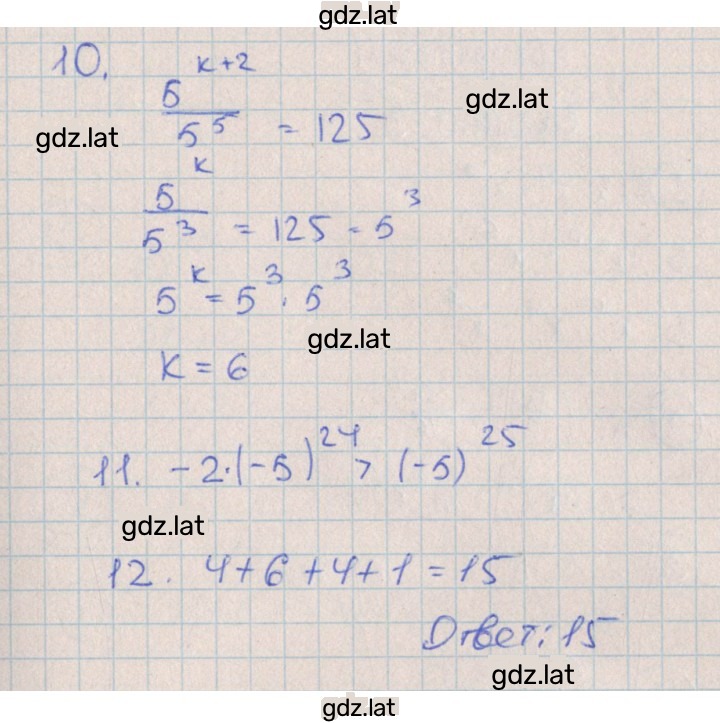 gdz.lat
10.
5^(к+2) / 5^5 = 125
gdz.lat
gdz.lat
5^к / 5^3 = 125 = 5^3
5^к = 5^3 · 5^3
gdz.lat
к = 6
11. -2·(-5)^24 > (-5)^25
gdz.lat
12. 4+6+4+1=15
Ответ: 15
gdz.lat
gdz.lat